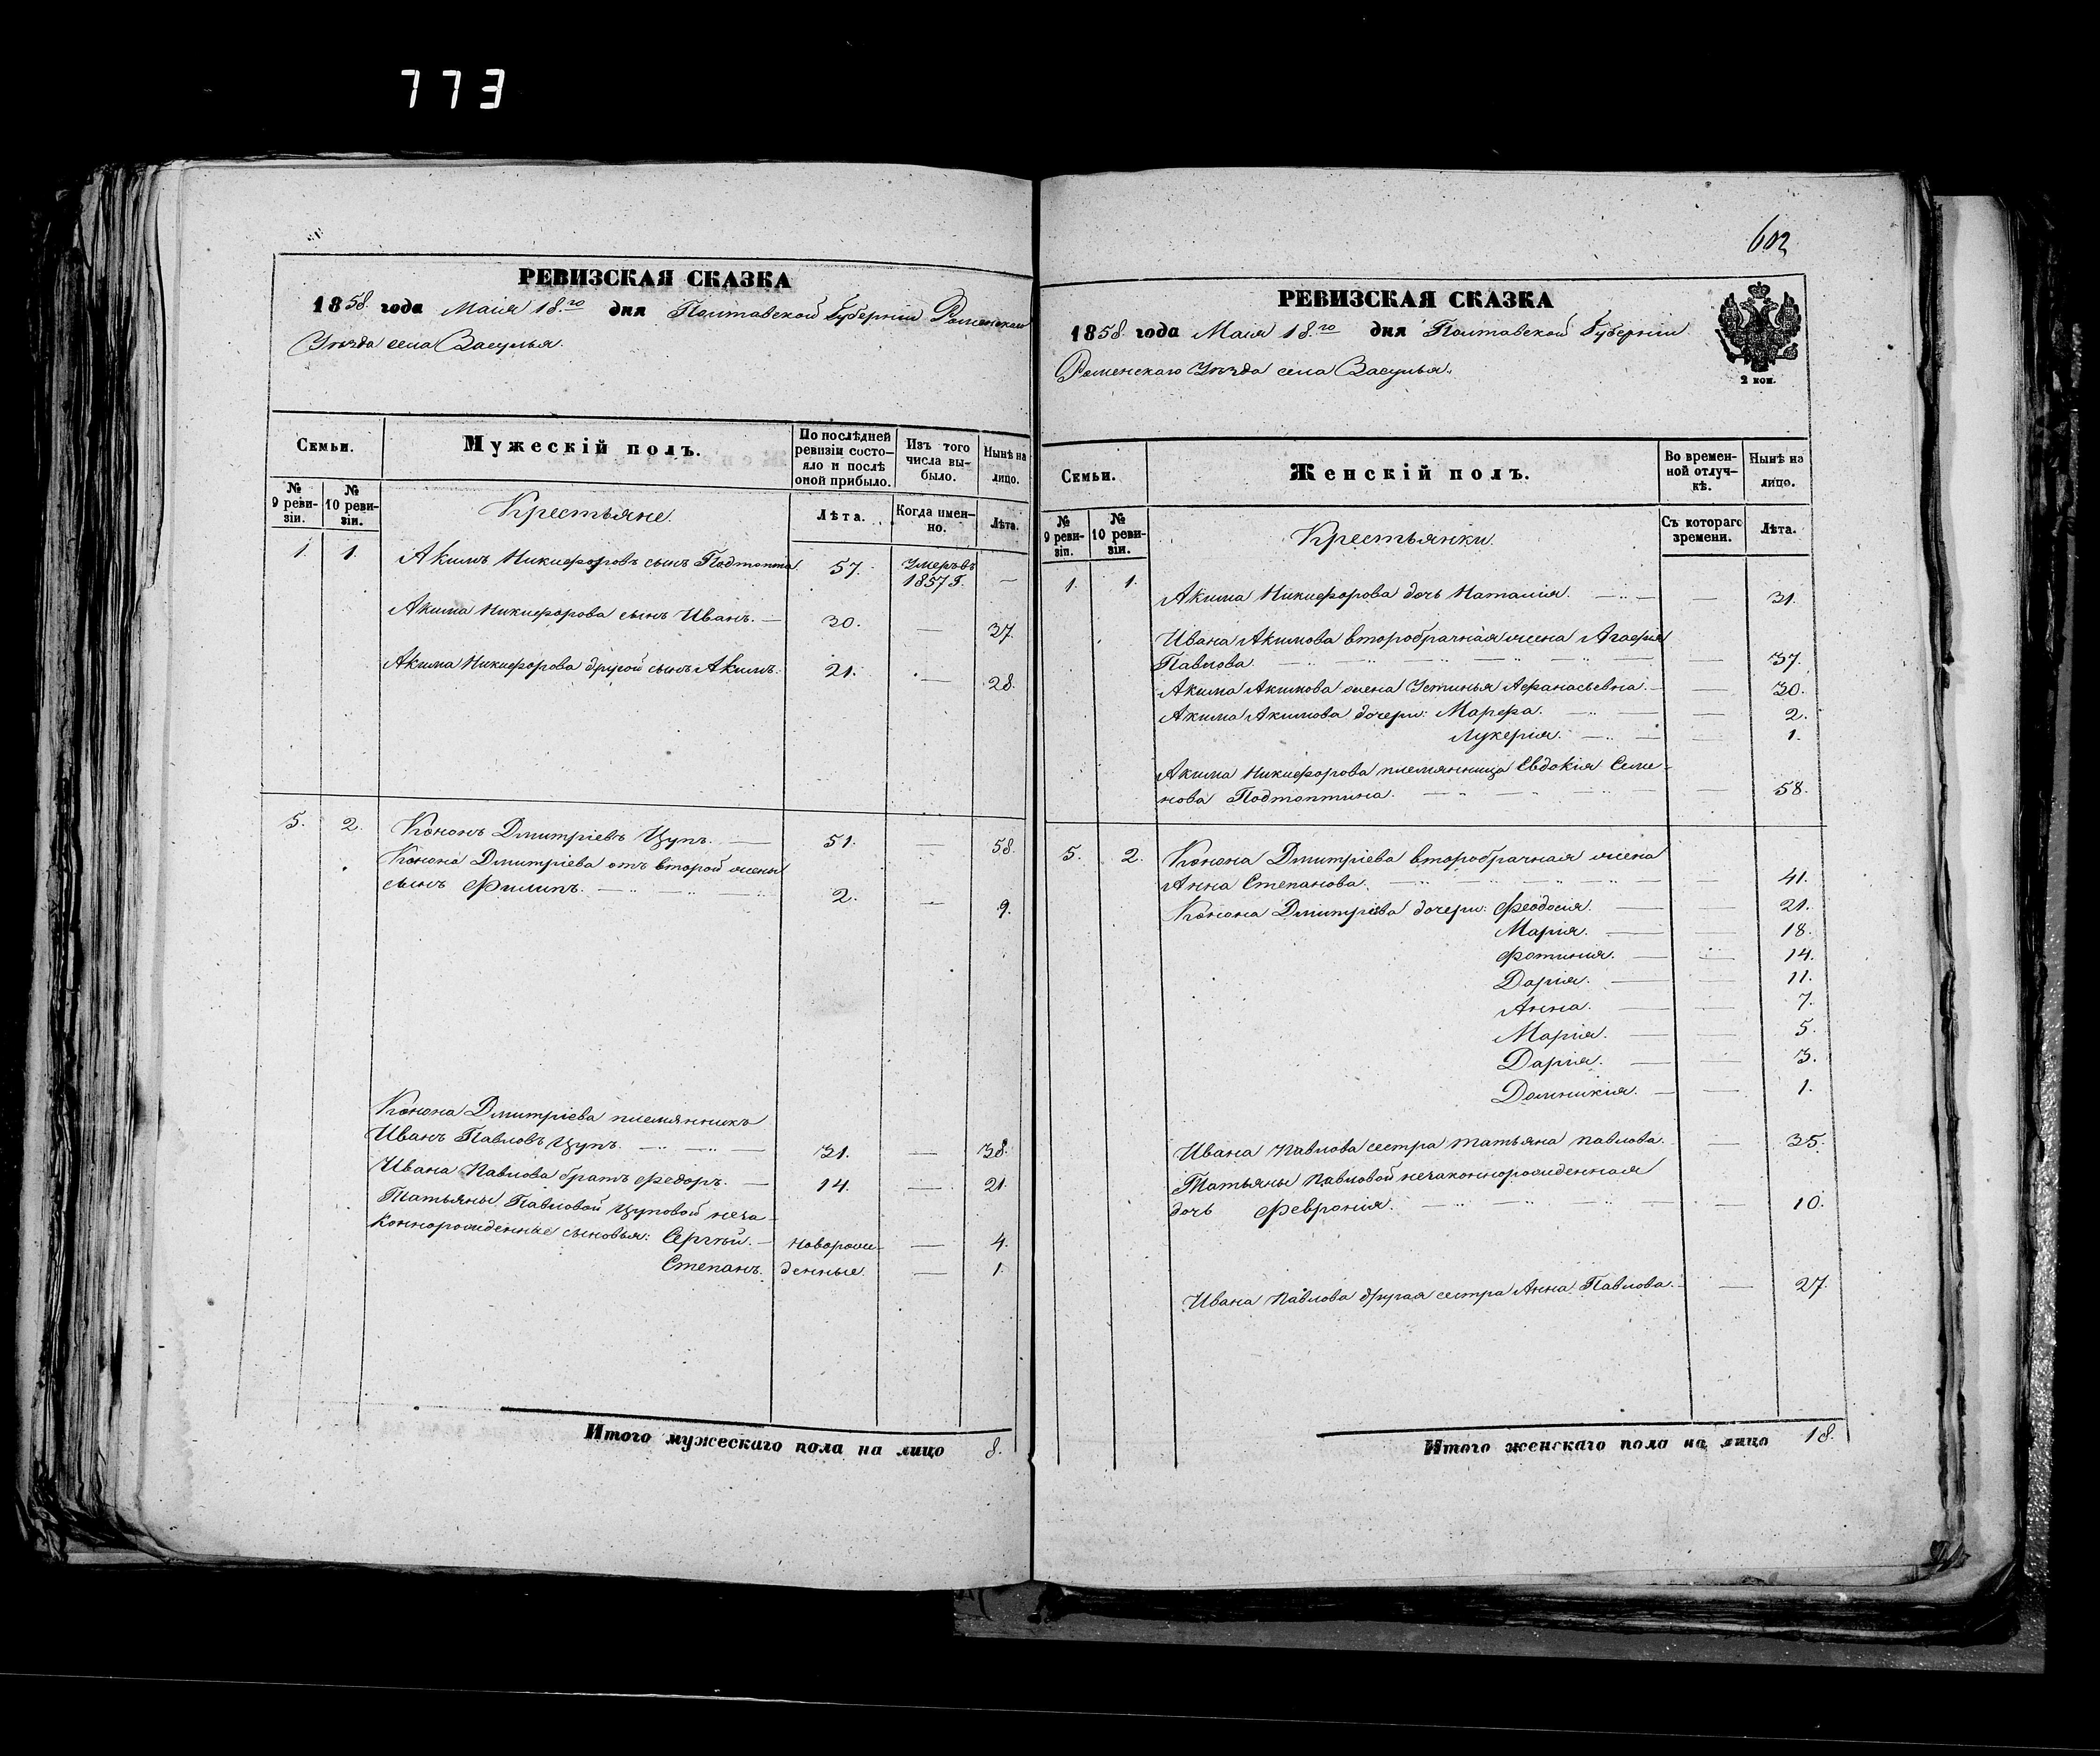 773
РЕВИЗСКАЯ СКАЗКА
1858 года Маія 18.го дня Полтавской Губерніи Роменскаго
Уѣзда села Засулья.
Семьи.
Мужескій полъ.
По послѣдней ревизіи состо-яло и послѣ оной прибыло.
Изъ того числа вы-было.
Нынѣ на лицо.
№ 9 реви-зіи.
№ 10 реви-зіи.
Крестьяне.
Лѣта.
Когда имен-но.
Лѣта.
1. 1. Акимъ Никифоровъ сынъ Подтоптан 57. Умеръ въ 1857 Г. —
Акима Никифорова сынъ Иванъ. — 30. — 37.
Акима Никифорова другой сынъ Акимъ. 21. — 28.
5. 2. Кононъ Дмитріевъ Цупъ. — 51. — 58.
Конона Дмитріева отъ второй жены
сынъ Филипъ. — 2. — 9.
Конона Дмитріева племянникъ
Иванъ Павловъ Цупъ. — 31. — 38.
Ивана Павлова братъ Федоръ. — 14. — 21.
Татьяны Павловой Цуповой неза-
коннорожденные сыновья: Сергѣй. — новорож- — 4.
Степанъ. денные. — 1.
Итого мужескаго пола на лицо 8.
602
РЕВИЗСКАЯ СКАЗКА
1858 года Маія 18.го дня Полтавской Губерніи
Роменскаго Уѣзда села Засулья.
2 коп.
Семьи.
Женскій полъ.
Во времен-ной отлуч-кѣ.
Нынѣ на лицо.
№ 9 реви-зіи.
№ 10 реви-зіи.
Крестьянки.
Съ котораго времени.
Лѣта.
1. 1. Акима Никифорова дочь Наталія. — — 31.
Ивана Акимова второбрачная жена Агафія
Павлова. — — 37.
Акима Акимова жена Устинья Афанасьевна. — — 30.
Акима Акимова дочери: Марфа. — — 2.
Лукерія. — — 1.
Акима Никифорова племянница Евдокія Семе-
нова Подтоптина. — — 58.
5. 2. Конона Дмитріева второбрачная жена
Анна Степанова. — — 41.
Конона Дмитріева дочери: Феодосія. — — 21.
Марія. — — 18.
Фотинія. — — 14.
Дарія. — — 11.
Анна. — — 7.
Марія. — — 5.
Дарія. — — 3.
Домникія. — — 1.
Ивана Павлова сестра Татьяна Павлова. — 35.
Татьяны Павловой незаконнорожденная
дочь Февронія. — — 10.
Ивана Павлова другая сестра Анна Павлова. — — 27.
Итого женскаго пола на лицо 18.